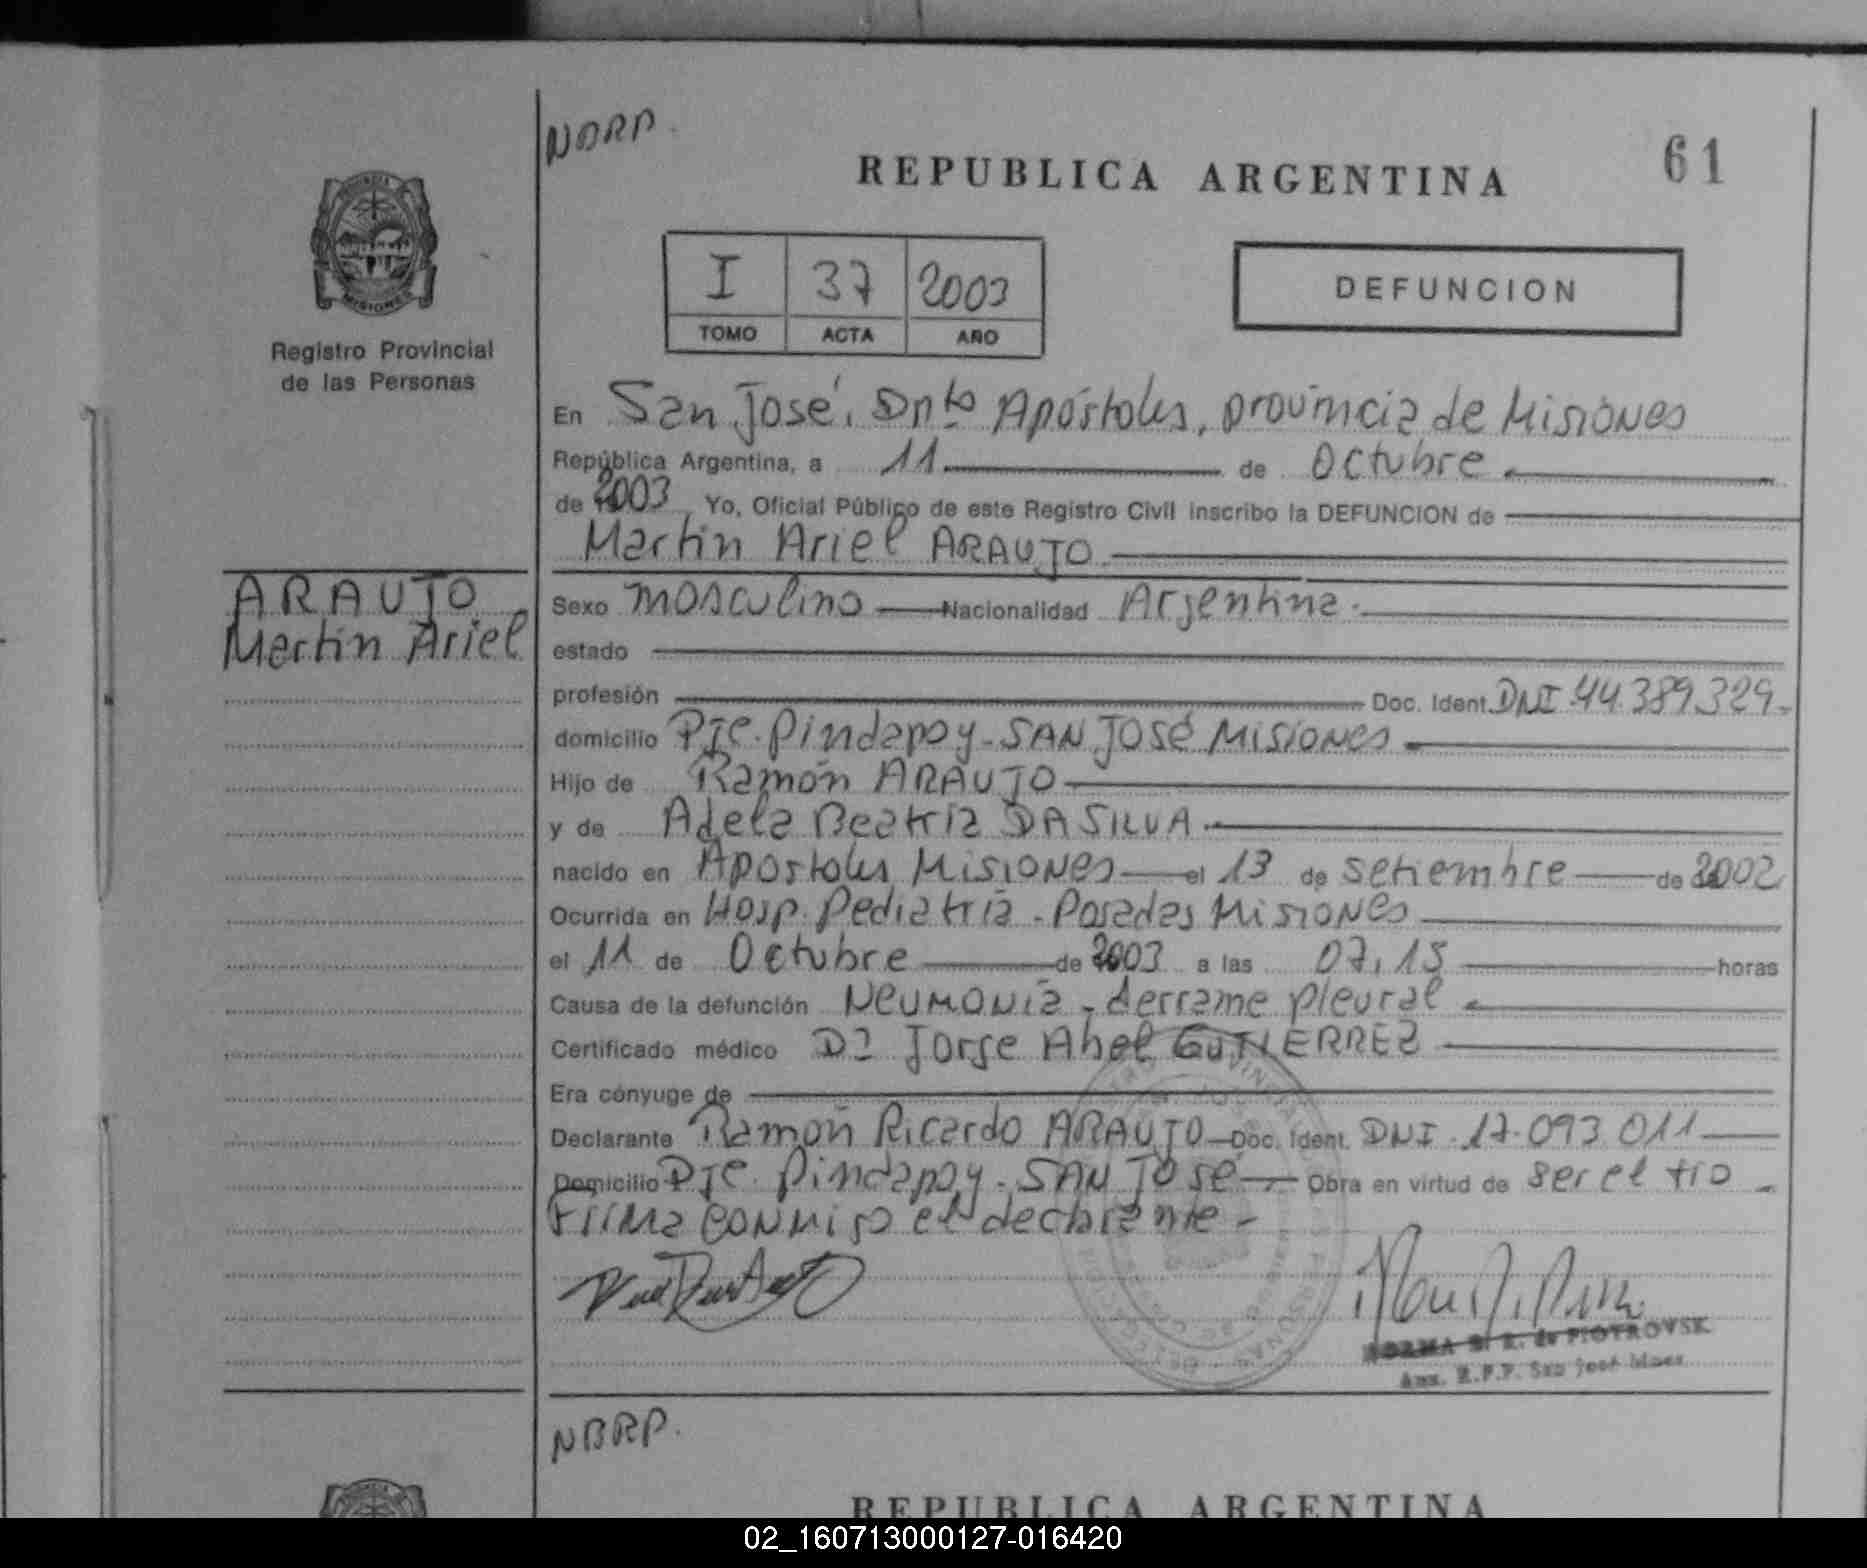 NBRP.
REPUBLICA ARGENTINA
61
I 37 2003
TOMO ACTA AÑO
DEFUNCION
MISIONES
Registro Provincial
de las Personas
ARAUJO
Martin Ariel
En San José, Dpto Apóstoles, provincia de Misiones
República Argentina, a 11 de Octubre
de 2003 Yo, Oficial Público de este Registro Civil inscribo la DEFUNCION de
Martin Ariel ARAUJO
Sexo masculino Nacionalidad Argentina
estado
profesión Doc. Ident. DNI 44.389.329
domicilio Pje. Pindapoy - SAN José Misiones
Hijo de Ramón ARAUJO
y de Adela Beatriz DA SILVA
nacido en Apóstoles Misiones el 13 de setiembre de 2002
Ocurrida en Hosp. Pediatría - Posadas Misiones
el 11 de Octubre de 2003 a las 07,15 horas
Causa de la defunción Neumonía - derrame pleural
Certificado médico Dr Jorge Abel GUTIERREZ
Era cónyuge de
Declarante Ramón Ricardo ARAUJO Doc. Ident. DNI 17.093.011
Domicilio Pje. Pindapoy - SAN José Obra en virtud de ser el tío
Firma conmigo el declarante -
NORMA B. R. de PIOTROVSK
Aux. R.P.P. San José Mnes
NBRP.
REPUBLICA ARGENTINA
02_160713000127-016420